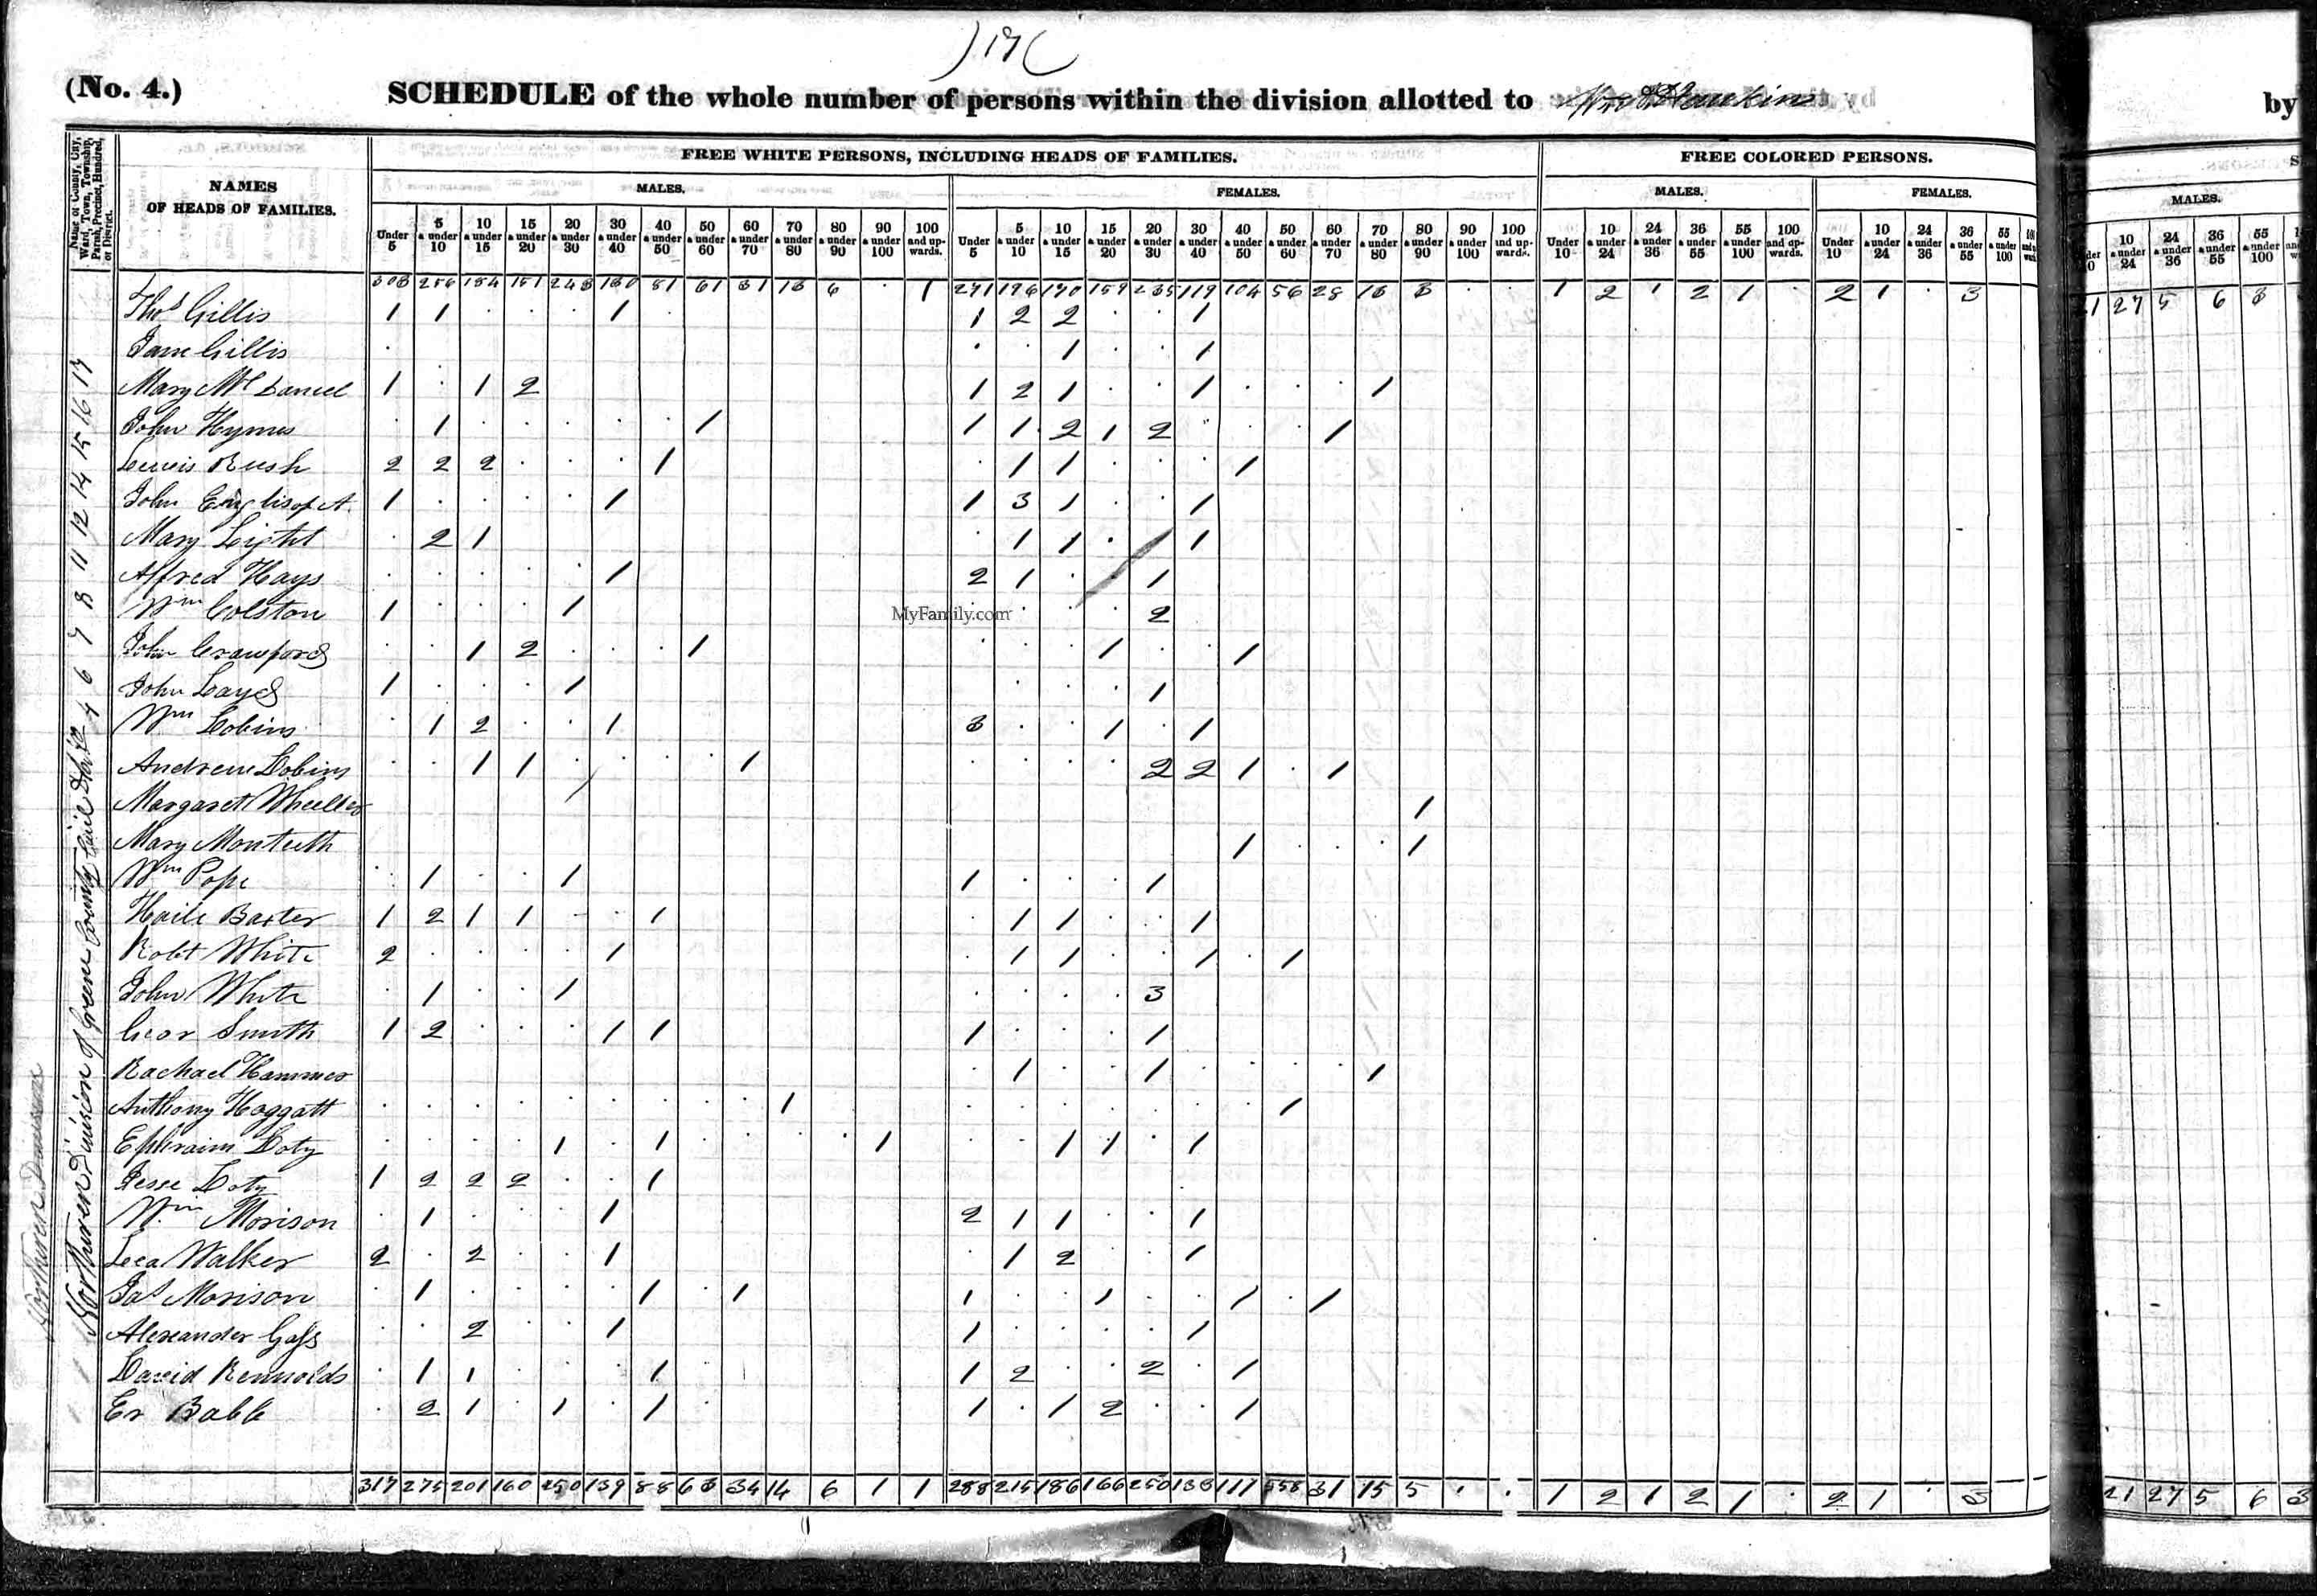 )17(
(No. 4.)
SCHEDULE of the whole number of persons within the division allotted to Hawkins by
FREE WHITE PERSONS, INCLUDING HEADS OF FAMILIES. FREE COLORED PERSONS.
Name of County, City, Ward, Town, Township, Parish, Precinct, Hundred, or District.
NAMES OF HEADS OF FAMILIES.
MALES. FEMALES. MALES. FEMALES. MALES.
Under 5 5 & under 10 10 & under 15 15 & under 20 20 & under 30 30 & under 40 40 & under 50 50 & under 60 60 & under 70 70 & under 80 80 & under 90 90 & under 100 100 and upwards. Under 5 5 & under 10 10 & under 15 15 & under 20 20 & under 30 30 & under 40 40 & under 50 50 & under 60 60 & under 70 70 & under 80 80 & under 90 90 & under 100 100 and upwards. Under 10 10 & under 24 24 & under 36 36 & under 55 55 & under 100 100 and upwards. Under 10 10 & under 24 24 & under 36 36 & under 55 55 & under 100 10 & under 24 24 & under 36 36 & under 55 55 & under 100
303 256 184 151 243 130 81 61 31 13 6 . 1 271 196 170 159 235 119 104 56 28 13 3 . . 1 2 1 2 1 . 2 1 . 3 27 5 6 3
Thos Gillis 1 1 . . . 1 . 1 2 2 . . 1
Jane Gillis . . . 1 . . 1
Mary McDaniel 1 . 1 2 1 2 1 . . 1 . . . 1
John Hymes . 1 . . . . . 1 1 1 2 1 2 . . . 1
Lewis Rush 2 2 2 . . . 1 . 1 1 . . . 1
John English of A. 1 . . . . 1 1 3 1 . . 1
Mary Light . 2 1 . 1 1 . 1 1
Alfred Hays . . . . . 1 2 1 . . 1
Wm Colston 1 . . . 1 . . . . 2
MyFamily.com
John Crawford . . 1 2 . . . 1 . . . 1 . . 1
John Layd 1 . . . 1 . . . 1
Wm Dobins . 1 2 . . 1 3 . . 1 . 1
Andrew Dobins . . 1 1 . . . . 1 . . . . 2 2 1 . 1
Margaret Wheeller 1
Mary Monteeth 1 . . . 1
Wm Pope . 1 . . 1 1 . . . 1
Haile Baxter 1 2 1 1 . . 1 . 1 1 . . 1
Robt White 2 . . . . 1 . 1 1 . . 1 . 1
John White . 1 . . 1 . . . . 3
Geor Smith 1 2 . . . 1 1 1 . . . 1
Rachael Hammer . 1 . . 1 . . . . 1
Anthony Hoggatt . . . . . . . . . 1 . . . . . . . 1
Ephraim Doty . . . . 1 . 1 . . . . 1 . . 1 1 . 1
Jesse Doty 1 2 2 2 . . 1
Wm Morison . 1 . . . 1 2 1 1 . . 1
Leea Walker 2 . 2 . . 1 . 1 2 . . 1
Jas Morison . 1 . . . . 1 . 1 1 . . 1 . . 1 . 1
Alexander Gass . . 2 . . 1 1 . . . . 1
David Rennolds . 1 1 . . . 1 1 2 . . 2 . 1
Er Babb . 2 1 . 1 . 1 . 1 . 1 2 . . 1
317 275 201 160 250 139 88 63 34 14 6 1 1 288 215 186 166 250 138 117 58 31 15 5 . . 1 2 1 2 1 . 2 1 . 3 21 27 5 6 3
Northern Division of Green County Civil Dists 4 6 7 8 11 12 14 15 16 17
Northern Division